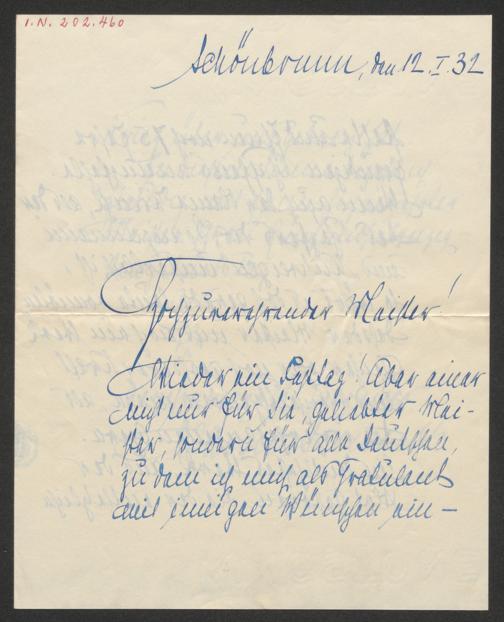 I.N. 202.460
Schönbrunn, den 12.I.32
Hochzuverehrender Meister!
Wieder ein Festtag! Aber einer
nicht nur für Sie, geliebter Mei-
ster, sondern für alle Deutschen,
zu dem ich mich als Gratulant
mit innigen Wünschen ein-